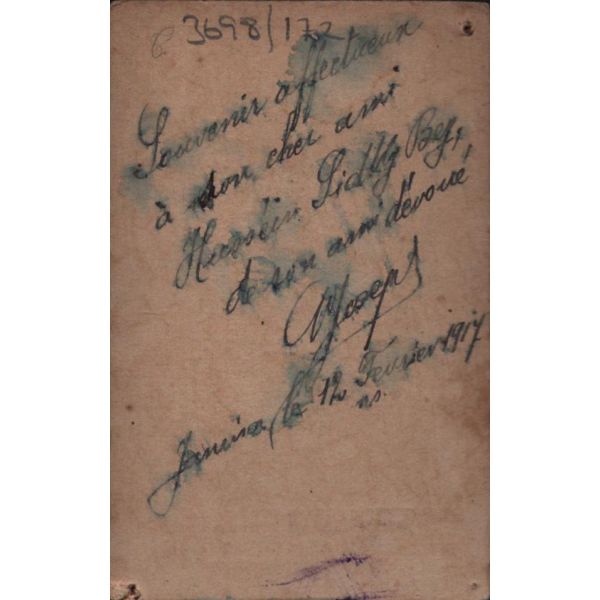 3698/172
Souvenir affectueux
à son cher ami
Hussein Sidky Bey,
de son ami dévoué
Janina, le 12 Fevrier 1917
n.s.